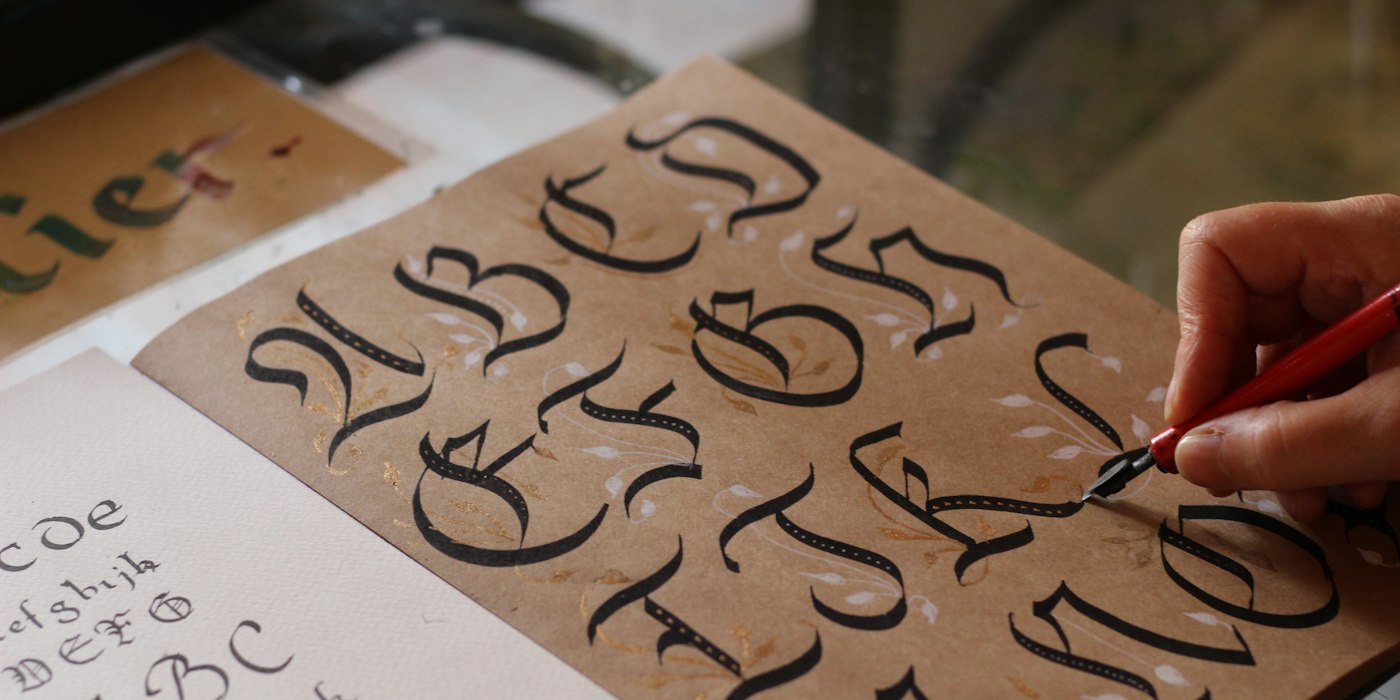 ier
A B C D
E F G H
I J K L
N O
c d e
efghijk
D E F G
B C